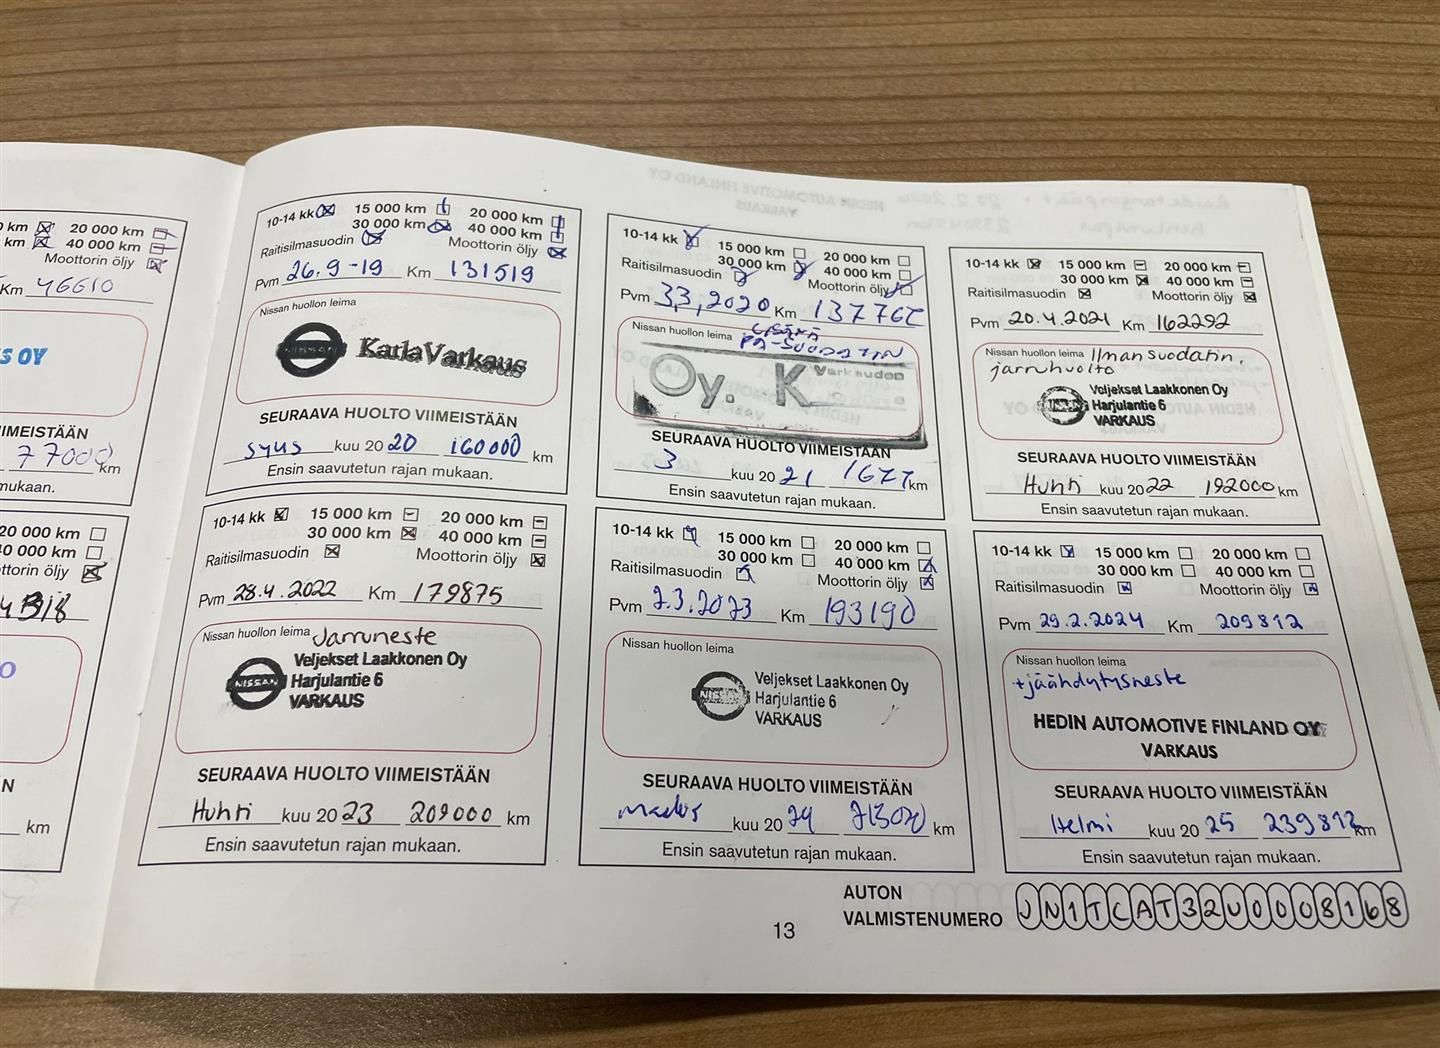 km
20 000 km
km
40 000 km
Moottorin öljy
Km 46610
S OY
IMEISTÄÄN
77000 km
mukaan.
20 000 km
40 000 km
ttorin öljy
O
N
km
10-14 kk 15 000 km 20 000 km
30 000 km 40 000 km
Raitisilmasuodin Moottorin öljy
Pvm 26.9-19 Km 131519
Nissan huollon leima
NISSAN KarlaVarkaus
SEURAAVA HUOLTO VIIMEISTÄÄN
syys kuu 20 20 160000 km
Ensin saavutetun rajan mukaan.
10-14 kk 15 000 km 20 000 km
30 000 km 40 000 km
Raitisilmasuodin Moottorin öljy
Pvm 3,3,2020 Km 13776
Nissan huollon leima
PA-SUODATIN
Oy. K
SEURAAVA HUOLTO VIIMEISTÄÄN
3 kuu 20 21 1677 km
Ensin saavutetun rajan mukaan.
10-14 kk 15 000 km 20 000 km
30 000 km 40 000 km
Raitisilmasuodin Moottorin öljy
Pvm 20.4.2021 Km 162292
Nissan huollon leima Ilmansuodatin,
jarruhuolto
Veljekset Laakkonen Oy
NISSAN Harjulantie 6
VARKAUS
SEURAAVA HUOLTO VIIMEISTÄÄN
Huhti kuu 20 22 192000 km
Ensin saavutetun rajan mukaan.
10-14 kk 15 000 km 20 000 km
30 000 km 40 000 km
Raitisilmasuodin Moottorin öljy
Pvm 28.4.2022 Km 179875
Nissan huollon leima Jarruneste
Veljekset Laakkonen Oy
NISSAN Harjulantie 6
VARKAUS
SEURAAVA HUOLTO VIIMEISTÄÄN
Huhti kuu 20 23 209000 km
Ensin saavutetun rajan mukaan.
10-14 kk 15 000 km 20 000 km
30 000 km 40 000 km
Raitisilmasuodin Moottorin öljy
Pvm 2.3.2023 Km 193190
Nissan huollon leima
Veljekset Laakkonen Oy
NISSAN Harjulantie 6
VARKAUS
SEURAAVA HUOLTO VIIMEISTÄÄN
kuu 20 24 213000 km
Ensin saavutetun rajan mukaan.
10-14 kk 15 000 km 20 000 km
30 000 km 40 000 km
Raitisilmasuodin Moottorin öljy
Pvm 29.2.2024 Km 209812
Nissan huollon leima
+jäähdytysneste
HEDIN AUTOMOTIVE FINLAND OY
VARKAUS
SEURAAVA HUOLTO VIIMEISTÄÄN
Helmi kuu 20 25 239812 km
Ensin saavutetun rajan mukaan.
AUTON
VALMISTENUMERO JN1TCAT32U0008168
13